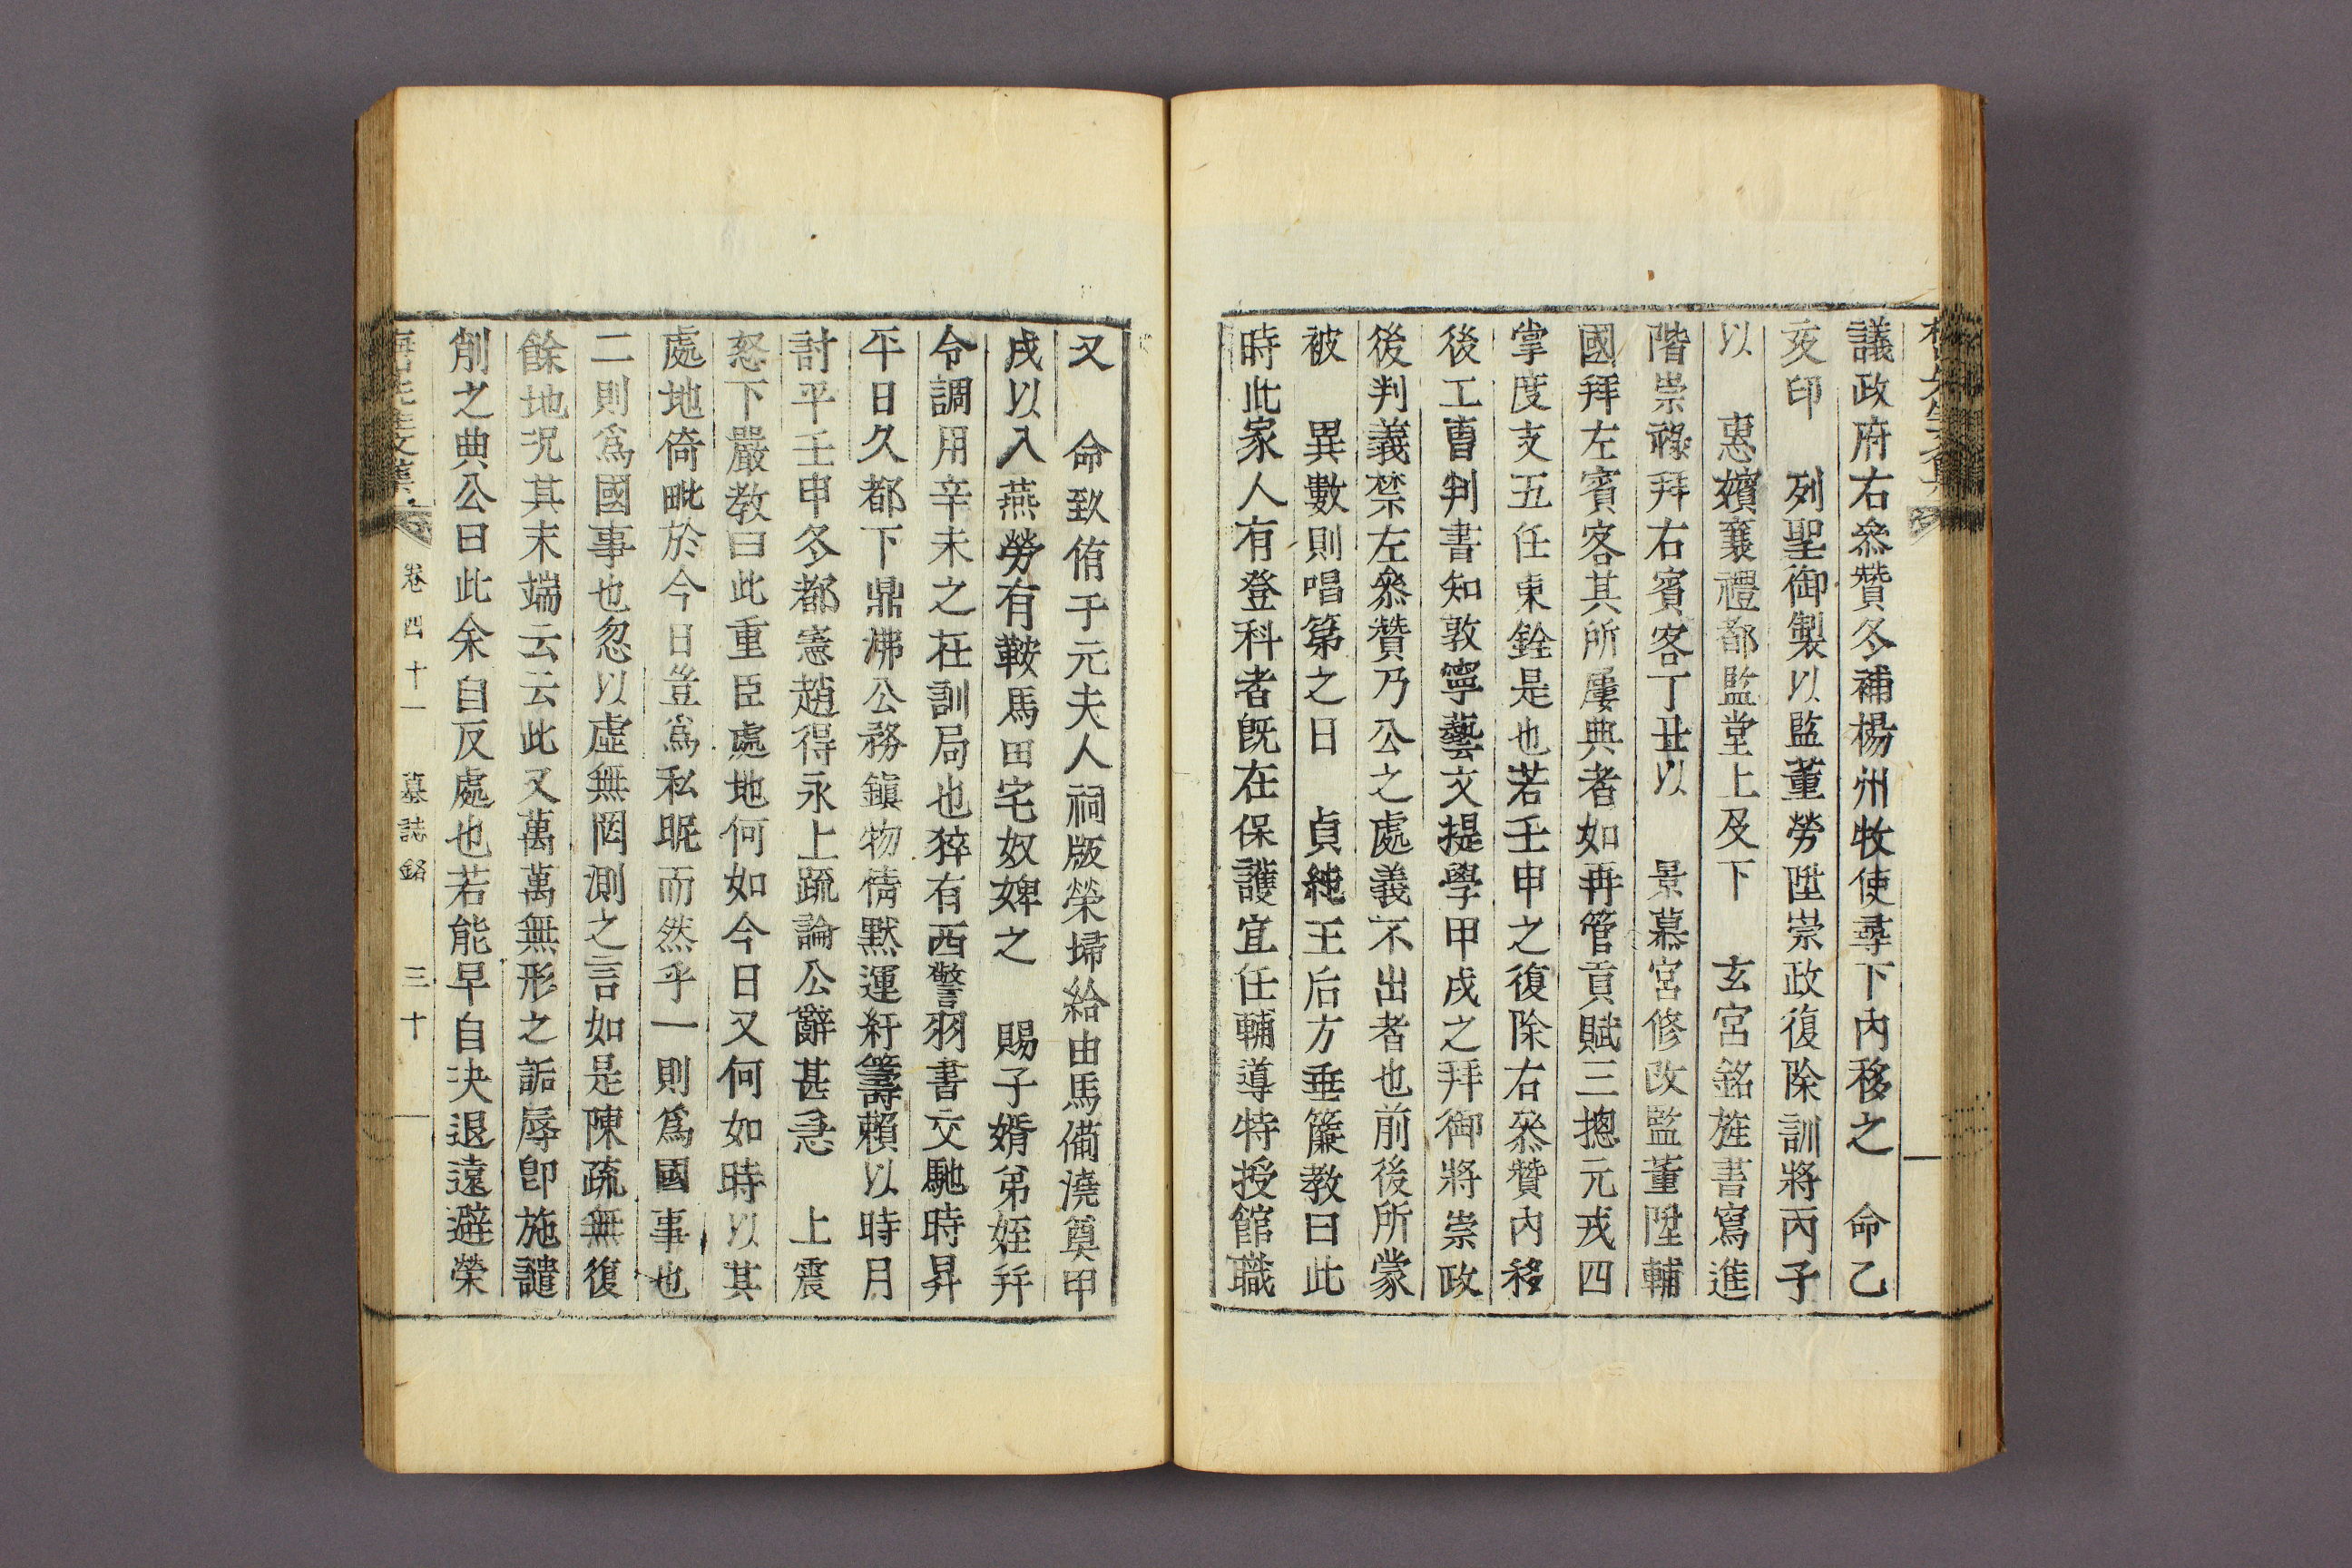 議政府右叅贊冬補楊州牧使尋下內移之　命乙
亥印　列聖御製以監董勞陞崇政復除訓將丙子
以　惠嬪襄禮都監堂上及下　玄宮銘旌書寫進
階崇祿拜右賓客丁丑以　景慕宮修改監董陞輔
國拜左賓客其所屢典者如再管貢賦三摠元戎四
掌度支五任東銓是也若壬申之復除右叅贊內移
後工曹判書知敦寧藝文提學甲戌之拜御將崇政
後判義禁左叅贊乃公之處義不出者也前後所蒙
被　異數則唱第之日　貞純王后方垂簾教曰此
時此家人有登科者旣在保護宜任輔導特授館職
又　命致侑于元夫人祠版榮埽給由馬備澆奠甲
戌以入燕勞有鞍馬田宅奴婢之　賜子婿弟姪幷
令調用辛未之在訓局也猝有西警羽書交馳時昇
平日久都下鼎沸公務鎭物情默運紆籌賴以時月
討平壬申冬都憲趙得永上疏論公辭甚急　上震
怒下嚴教曰此重臣處地何如今日又何如時以其
處地倚毗於今日豈爲私昵而然乎一則爲國事也
二則爲國事也忽以虛無罔測之言如是陳疏無復
餘地況其末端云云此又萬萬無形之詬辱卽施譴
削之典公曰此余自反處也若能早自決退遠避榮
卷四十一　墓誌銘　三十